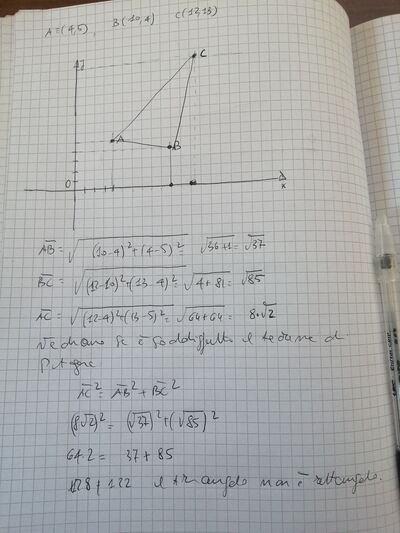 A=(4,5), B(10,4) C(12,13)
y
C
A
B
0
x
AB = √(10-4)²+(4-5)² = √36+1 = √37
BC = √(12-10)²+(13-4)² = √4+81 = √85
AC = √(12-4)²+(13-5)² = √64+64 = 8·√2
Vediamo se è soddisfatto il teorema di
Pitagora
AC² = AB² + BC²
(8√2)² = (√37)²+(√85)²
64·2 = 37+85
128 ≠ 122 il triangolo non è rettangolo.